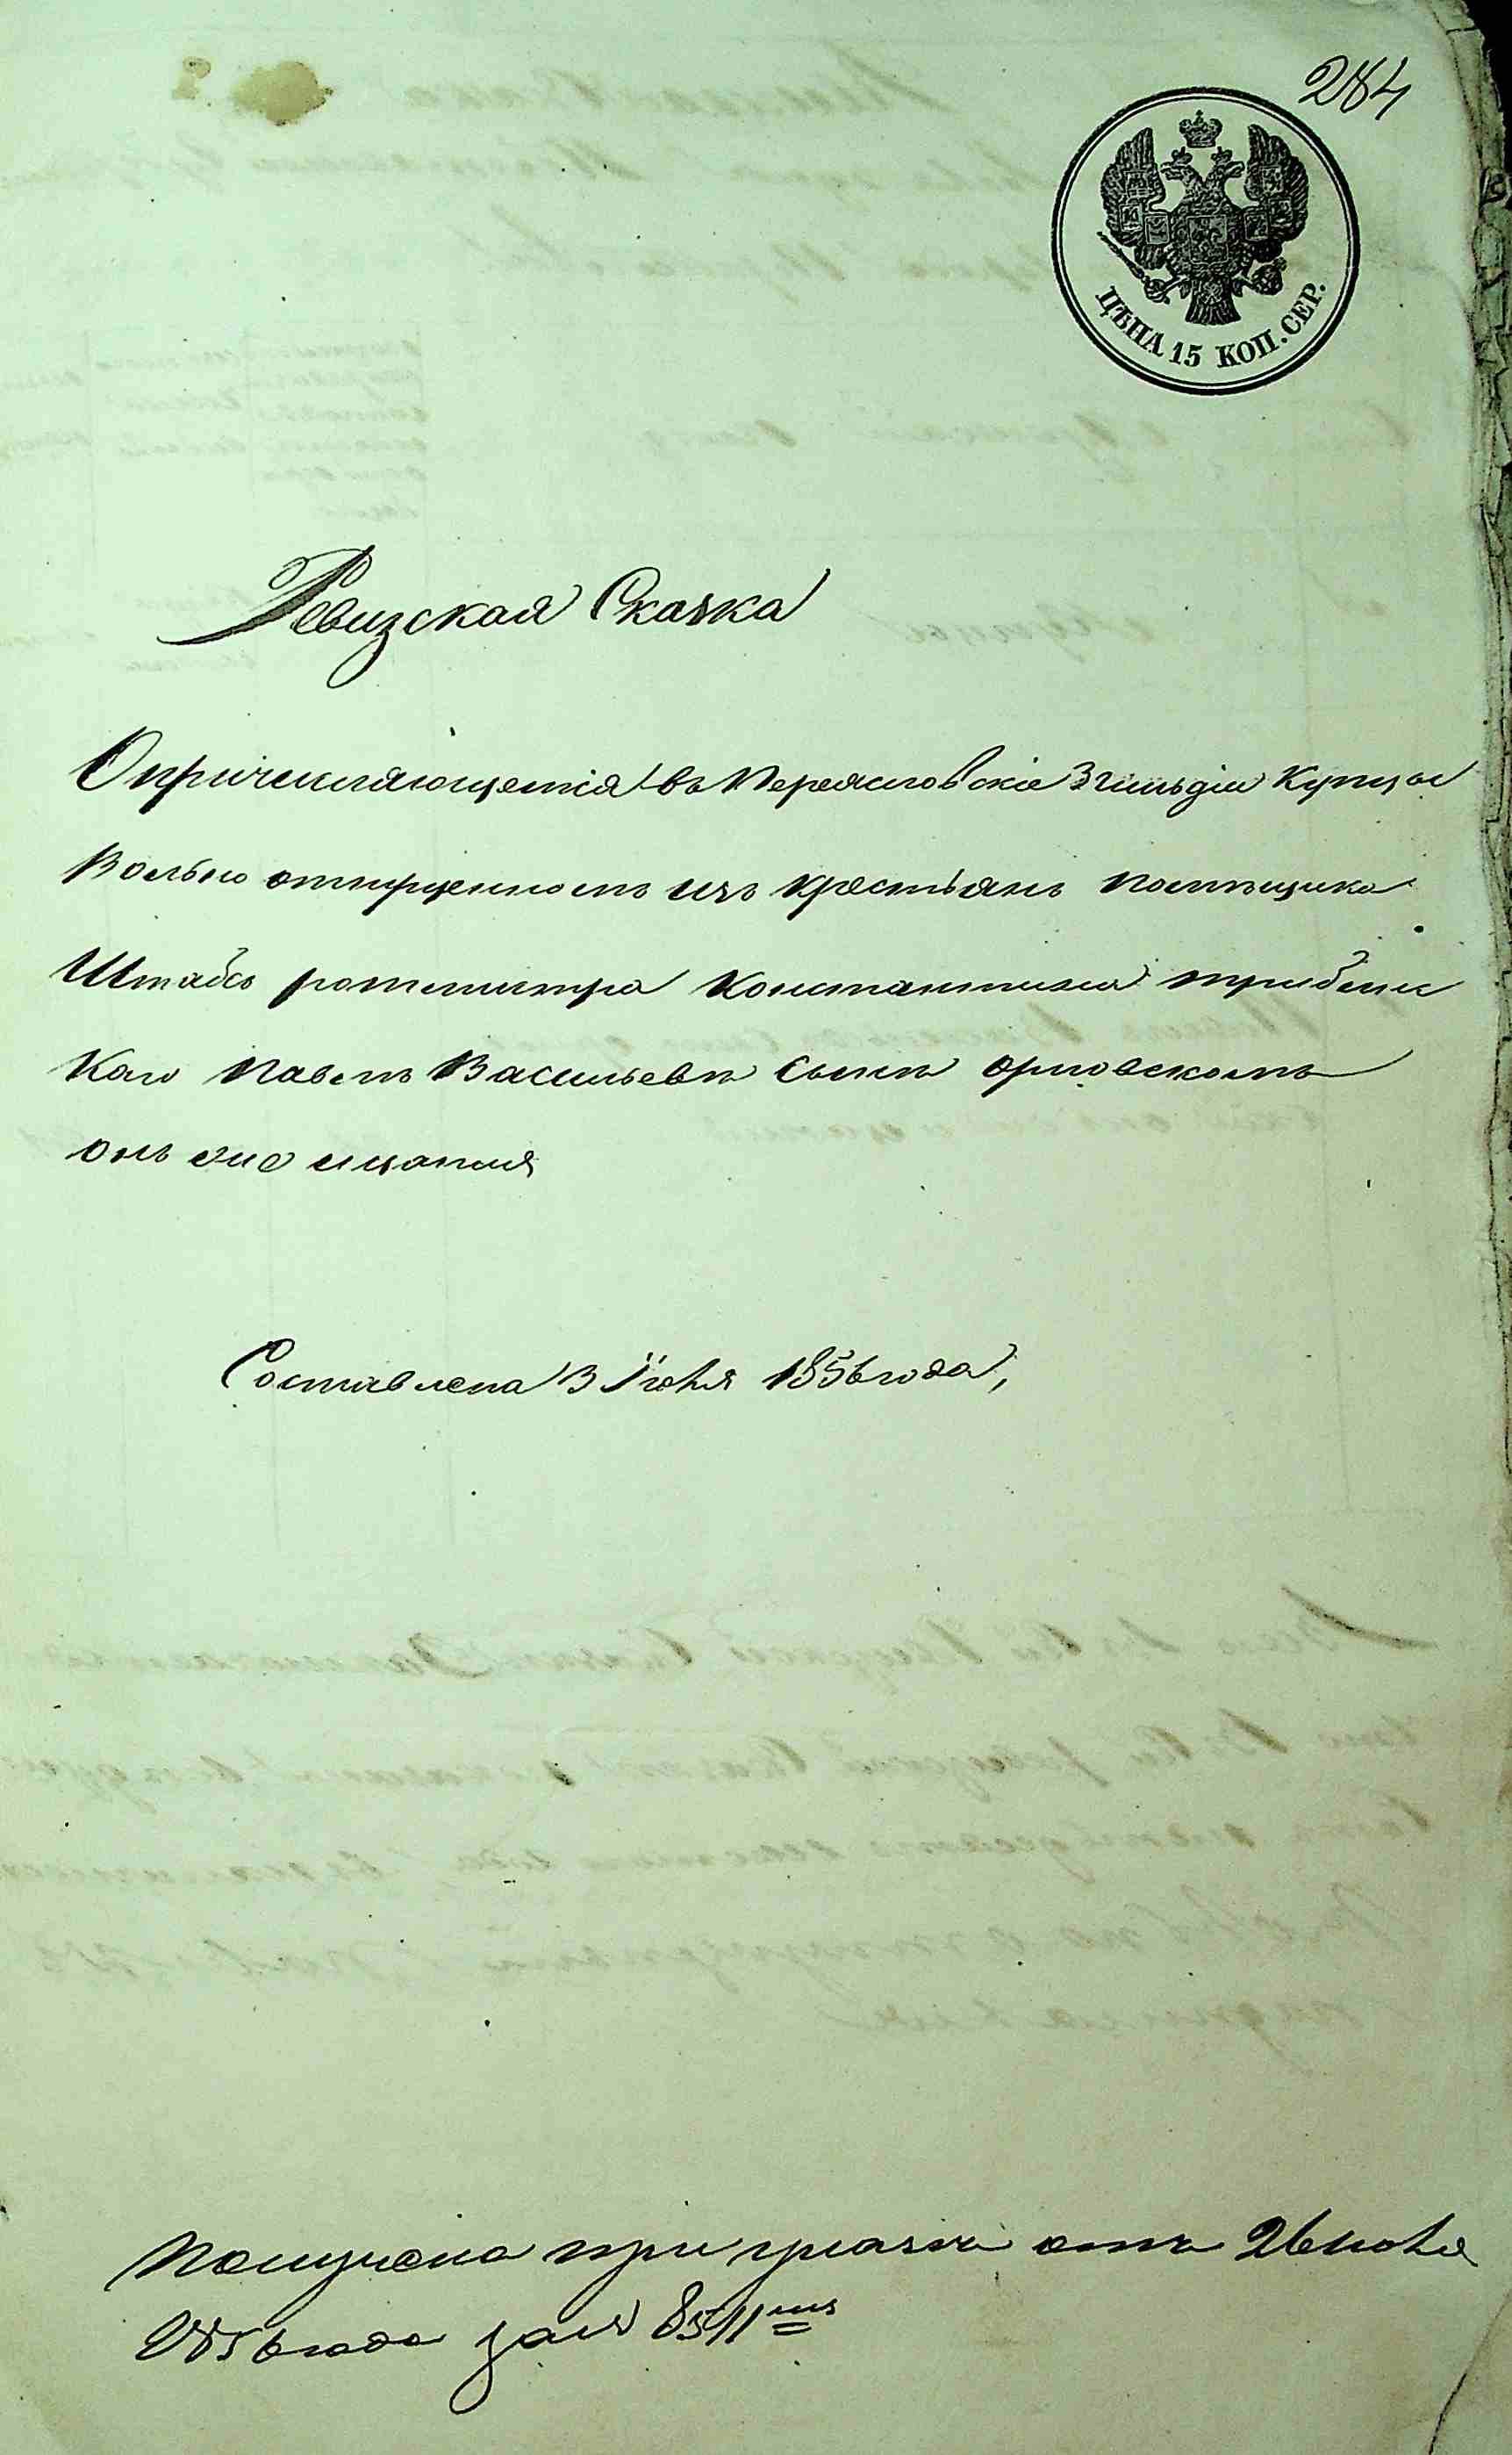 284
ЦѢНА 15 КОП. СЕР.
Ревизская Сказка
О причисляющемся въ Переясловскіе 3 гильдіи Купцы
Вольно отпущенномъ изъ крестьянъ помѣщика
Штабсъ ротмистра Константина
Павелъ Васильевъ Сынъ Орловскомъ
Составлена 3 Іюня 1856 года,
Получена при указѣ отъ 26 іюня
1856 года за № 8511